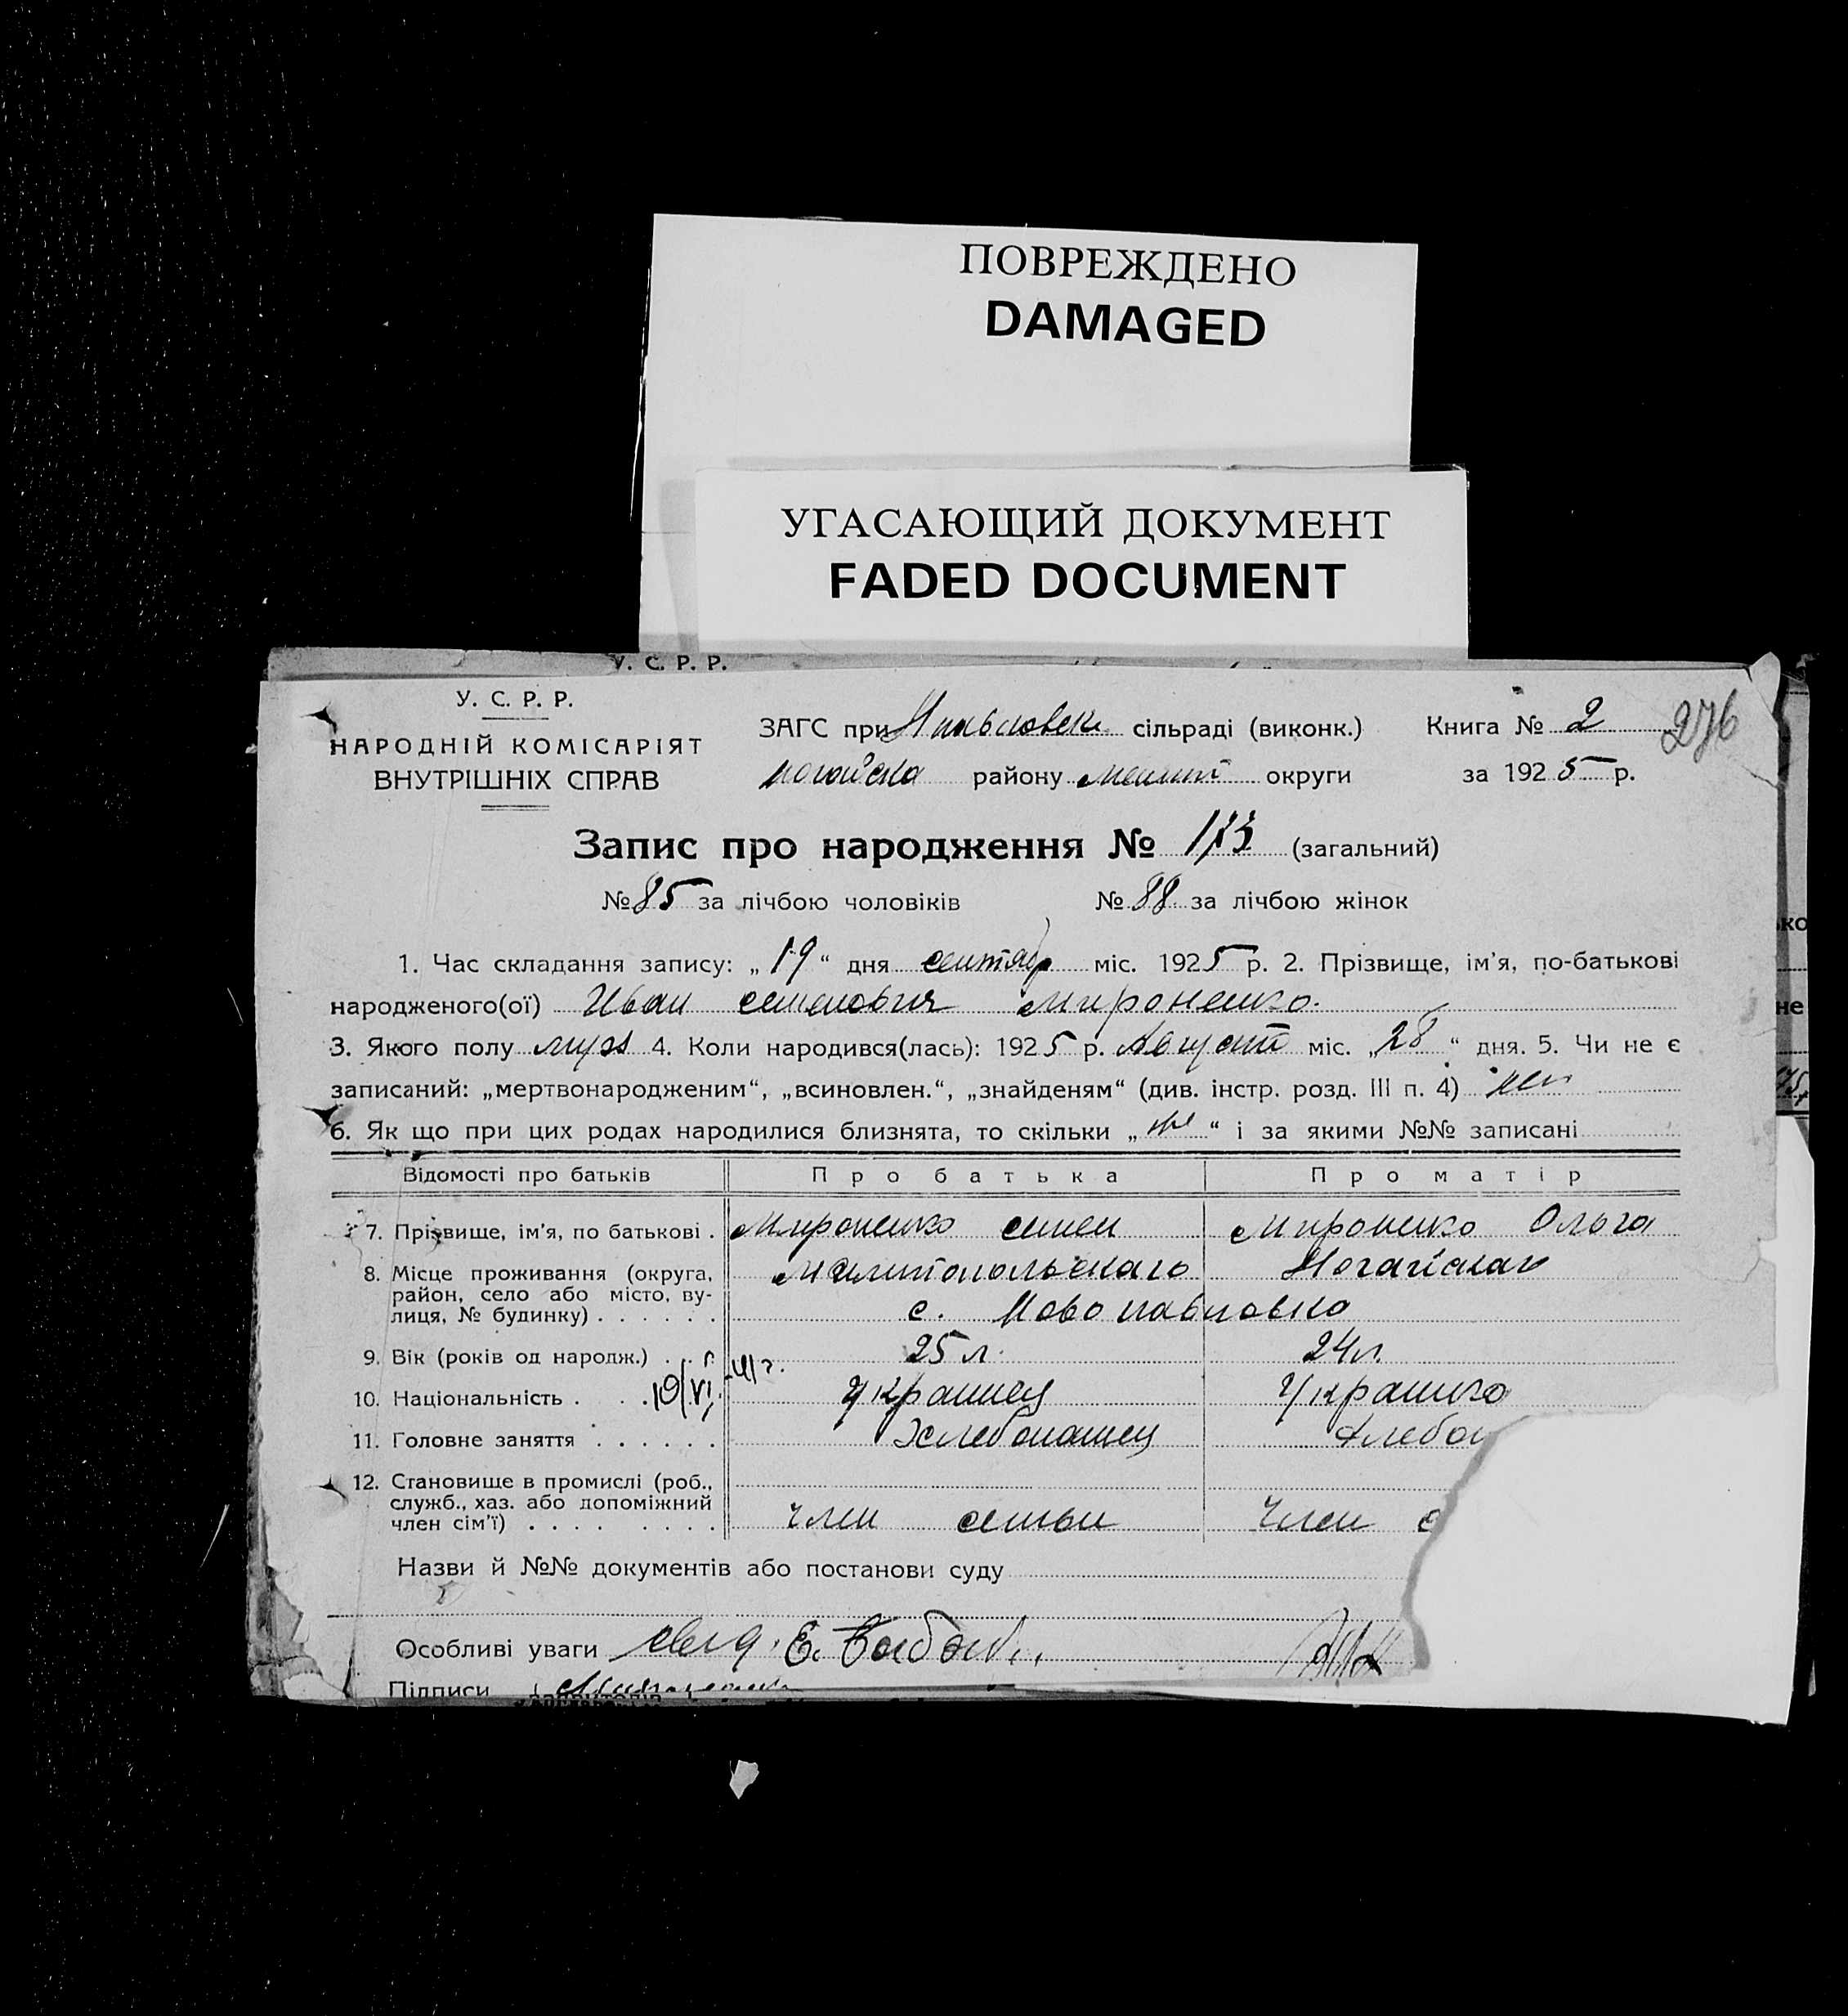 ПОВРЕЖДЕНО
DAMAGED
УГАСАЮЩИЙ ДОКУМЕНТ
FADED DOCUMENT
У. С. Р. Р.
У. С. Р. Р.
НАРОДНІЙ КОМІСАРІЯТ
ВНУТРІШНІХ СПРАВ
ЗАГС при сільраді (виконк.)
района району Мелит округи
Книга № 2
276
за 1925 р.
Запис про народження № 173 (загальний)
№ 85 за лічбою чоловіків № 88 за лічбою жінок
1. Час складання запису: „19“ дня сентябр міс. 1925 р. 2. Прізвище, ім'я, по-батькові
народженого(ої) Иван Семенович Мироненко.
3. Якого полу муж 4. Коли народився(лась): 1925 р. Август міс. „28“ дня. 5. Чи не є
записаний: „мертвонародженим“, „всиновлен.“, „знайденям“ (див. інстр. розд. III п. 4) нет
6. Як що при цих родах народилися близнята, то скільки „ “ і за якими №№ записані
Відомості про батьків Про батька Про матір
7. Прізвище, ім'я, по батькові . Мироненко Семен Мироненко Ольга
8. Місце проживання (округа, район, село або місто, вулиця, № будинку) . . . . . . Мелитопольскаго Ногайскаго
с. Ново павловка
9. Вік (років од народж.) . . 25 л. 24 л.
10. Національність . . . 10/VI 41 г. Украинец Украинка
11. Головне заняття . . . . . . Хлебопашец Хлебоп
12. Становище в промислі (роб., служб., хаз. або допоміжний член сім'ї) . . . . . . . . . член семьи член с
Назви й №№ документів або постанови суду
Особливі уваги
Підписи